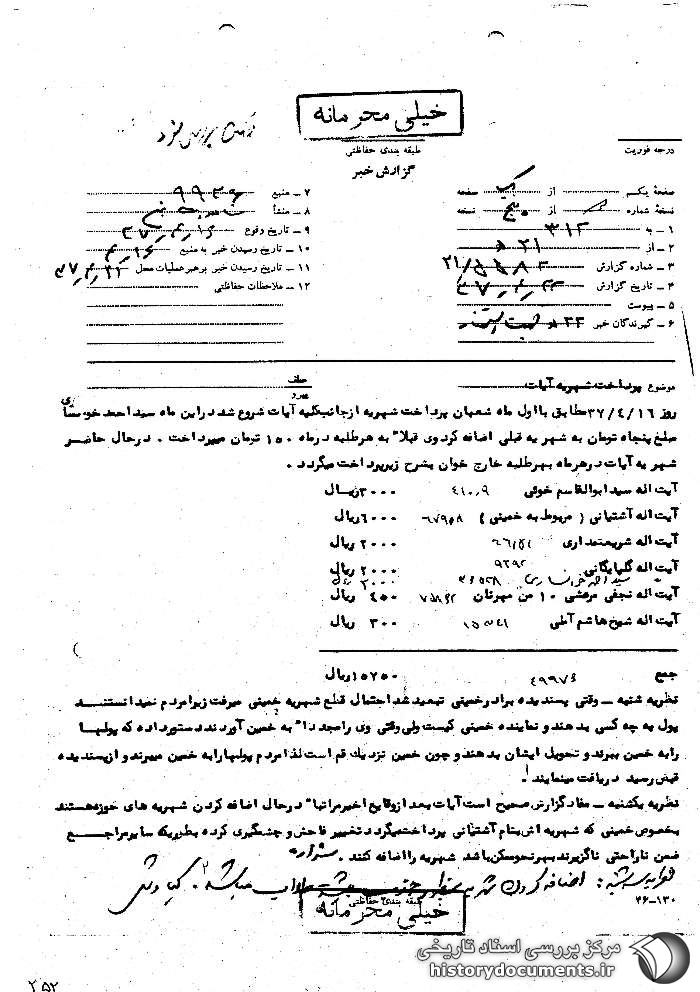 خیلی محرمانه
درجه فوریت
طبقه بندی حفاظتی
گزارش خبر
صفحهٔ یکم از یک صفحه
نسخهٔ شماره از پنج نسخه
۱ – به ۳۱۲
۲ – از ۲۱ ه
۳ – شماره گزارش
۴ – تاریخ گزارش
۵ – پیوست
۶ – گیرندگان خبر
۷ – منبع ۹۹۳۶
۸ – منشأ
۹ – تاریخ وقوع ۳۷٫۴٫۱۶
۱۰ – تاریخ رسیدن خبر به منبع ۴٫۱۶
۱۱ – تاریخ رسیدن خبر برهبر عملیات محل ۳۷٫۴٫۲۲
۱۲ – ملاحظات حفاظتی
موضوع پرداخت شهریه آیات
روز ۳۷/۴/۱۶ مطابق با اول ماه شعبان پرداخت شهریه ازجانب کلیه آیات شروع شد دراین ماه سید احمد خونساری
مبلغ پنجاه تومان به شهریه قبلی اضافه کرد وی قبلا" به هرطلبه درماه ۱۵۰ تومان میپرداخت . درحال حاضر
شهریه آیات درهرماه بهرطلبه خارج خوان بشرح زیرپرداخت میگردد .
آیت اله سید ابوالقاسم خوئی ۴۱۰۹ ۳۰۰۰ ریال
آیت اله آشتیانی ( مربوط به خمینی ) ۶۷۹۵۸ ۶۰۰۰ ریال
آیت اله شریعتمداری ۲۰۰۰ ریال
آیت اله گلپایگانی ۹۲۹۲ ۲۰۰۰ ریال
سید احمد خونساری ۳۶۵۲۸ ۲۰۰۰ ریال
آیت اله نجفی مرعشی ۱۰ من مهرنان ۴۵۰ ریال
آیت اله شیخ هاشم آملی ۳۰۰ ریال
جمع ۴۹۹۷۶ ۱۵۲۵۰ ریال
نظریه شنبه – وقتی پسندیده برادر خمینی تبعید شد احتمال قطع شهریه خمینی میرفت زیرا مردم نمیدانستند
پول به چه کسی بدهند و نماینده خمینی کیست ولی وقتی وی رامجددا" به خمین آوردند دستور داده که پولها
رابه خمین ببرند و تحویل ایشان بدهند و چون خمین نزدیک قم است لذا مردم پولها رابه خمین میبرند و ازپسندیده
قبض رسید دریافت مینمایند .
نظریه یکشنبه – مفاد گزارش صحیح است آیات بعد ازوقایع اخیر مراتبا" درحال اضافه کردن شهریه های حوزه هستند
بخصوص خمینی که شهریه اش بنام آشتیانی پرداخت میگردد تغییر فاحش و چشمگیری کرده بطوریکه سایر مراجع
ضمن ناراحتی ناگزیرند بهر نحو ممکن باشد شهریه را اضافه کنند .
نظریه سه شنبه : اضافه کردن شهریه
۳۶–۱۳۰
طبقه بندی حفاظتی
خیلی محرمانه
مرکز بررسی اسناد تاریخی
historydocuments.ir
۲۵۲